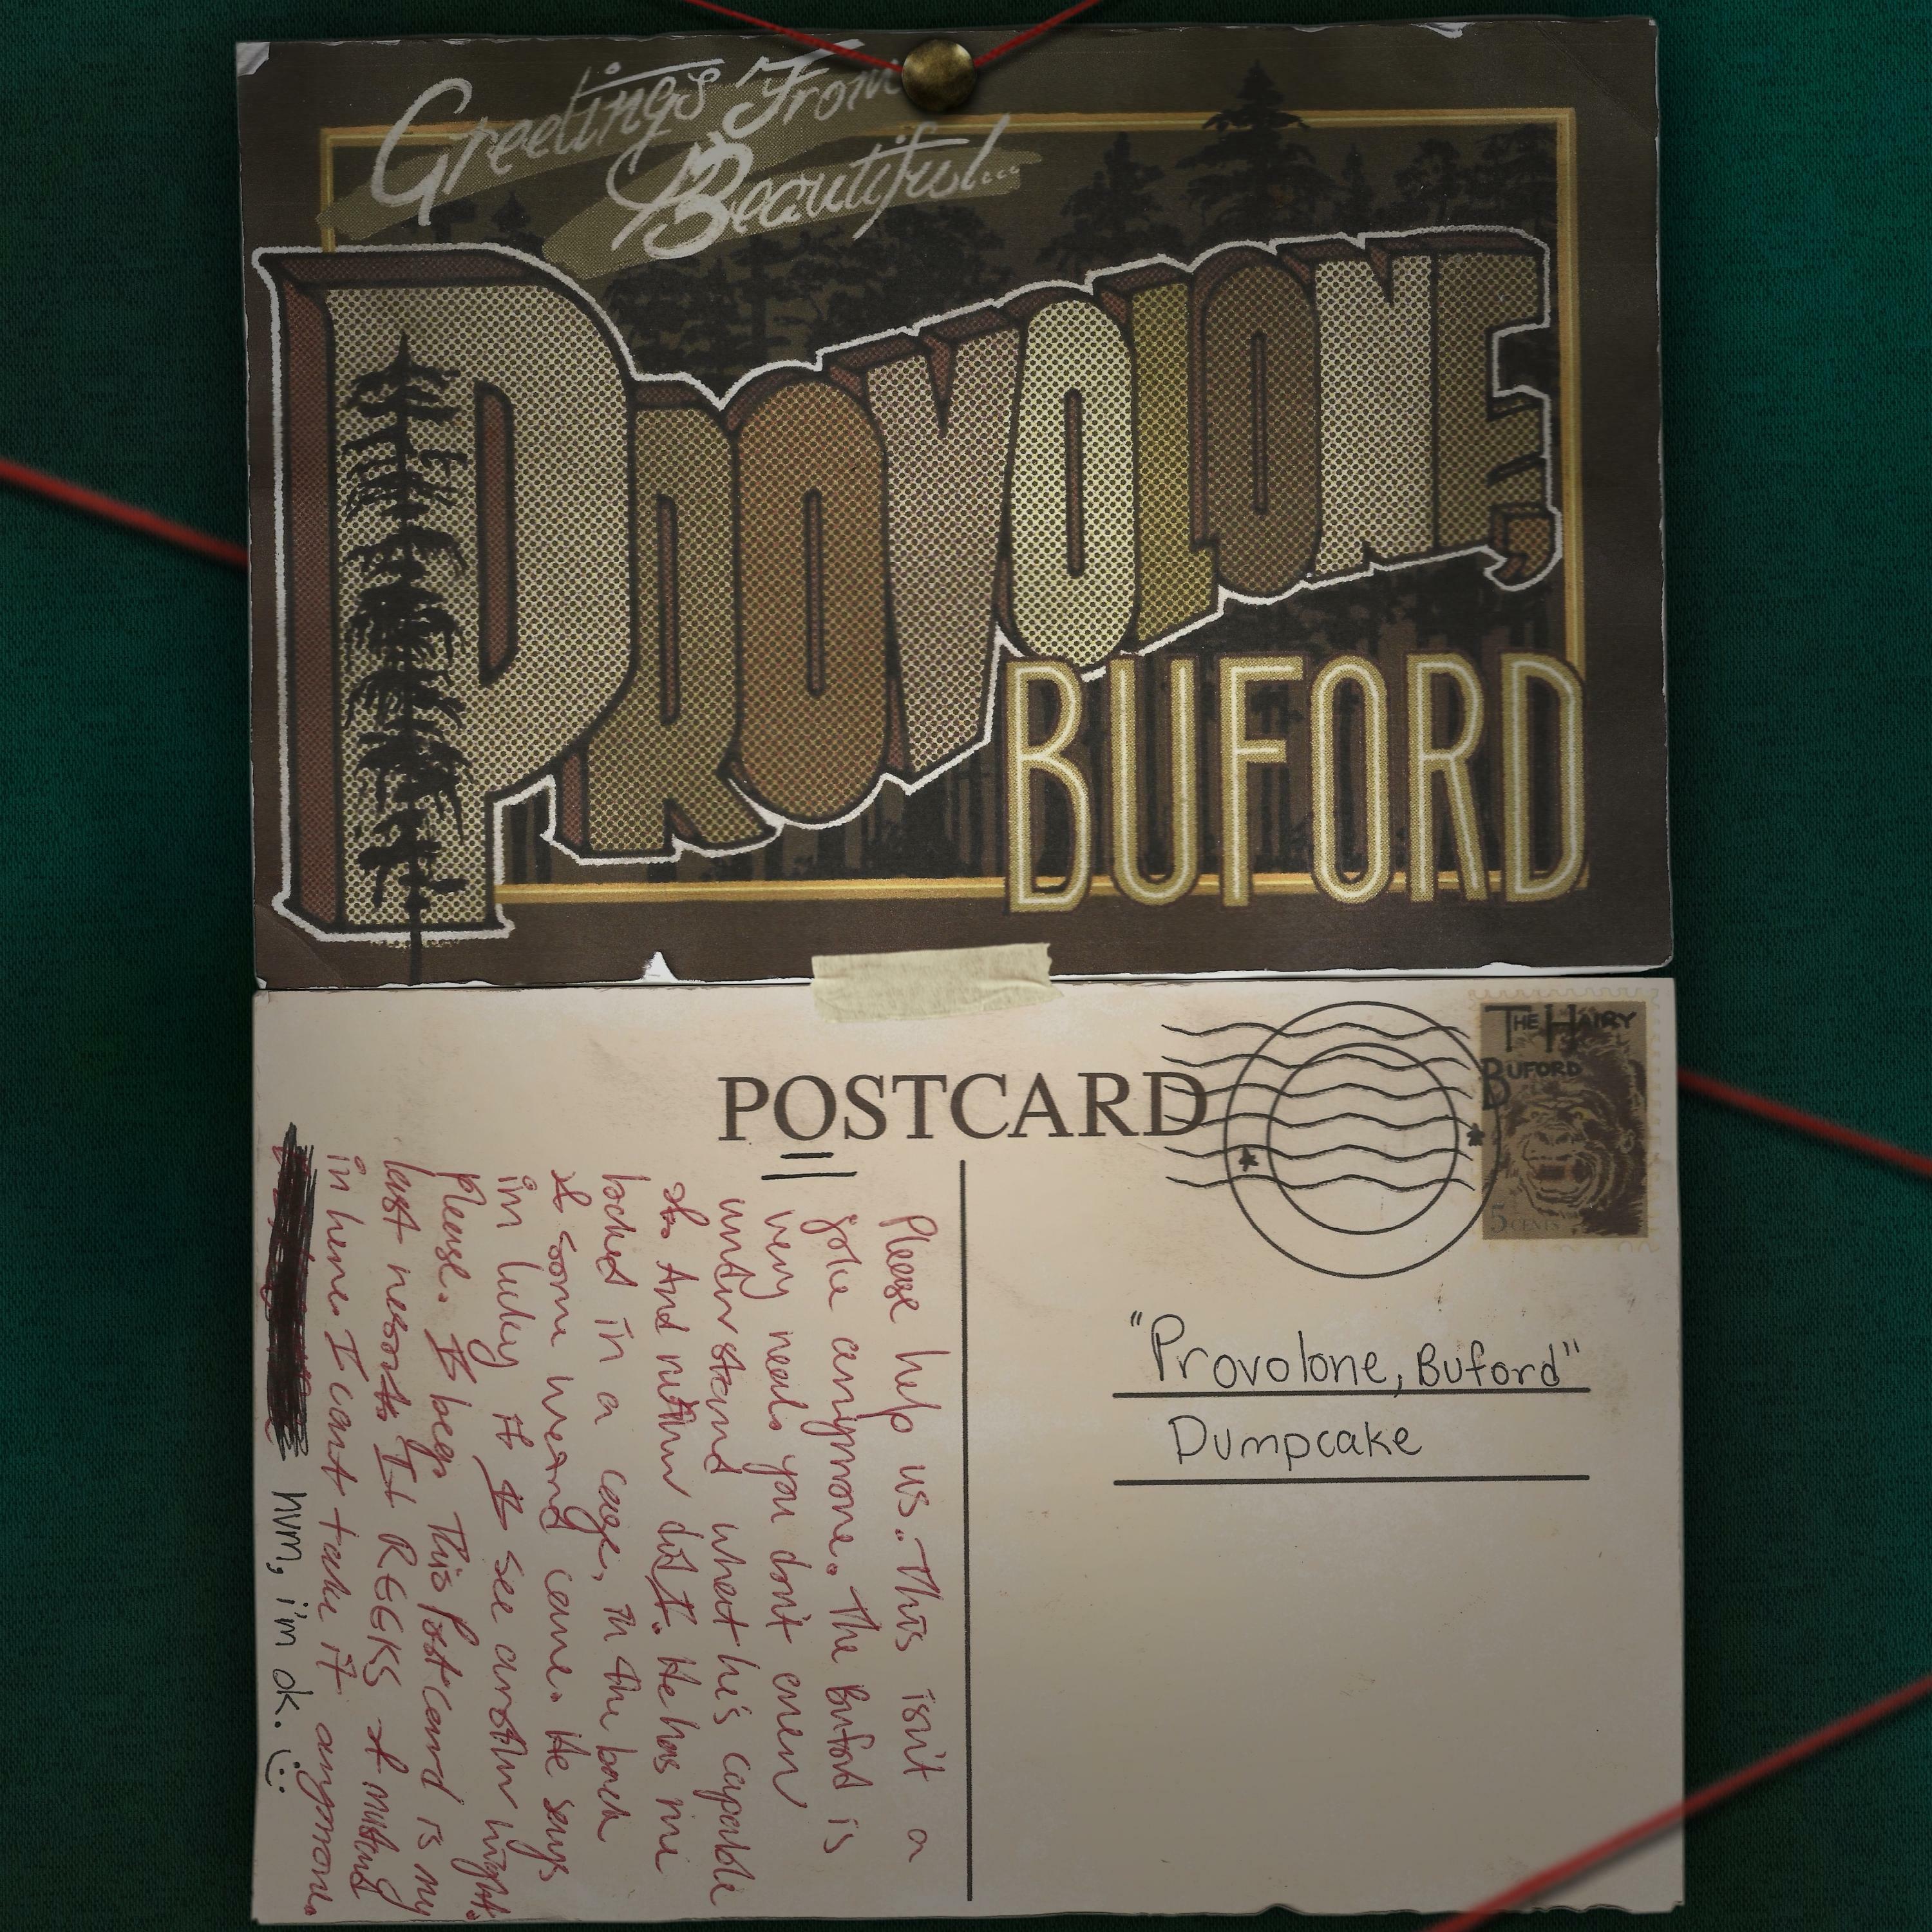 Greetings From
Beautiful...
PROVOLONE,
BUFORD
POSTCARD
THE HAIRY
BUFORD
5 CENTS
Please help us. This isn't a
joke anymore. The Buford is
very real. you don't even
understand what he's capable
of. And neither did I. He has me
locked in a cage, in the back
of some weird cave. He says
im lucky if I see another night.
Please. I beg. This Postcard is my
last resort. It REEKS of mustard
in here. I cant take it anymore.
nvm, i'm ok. :)
"Provolone, Buford"
Dumpcake